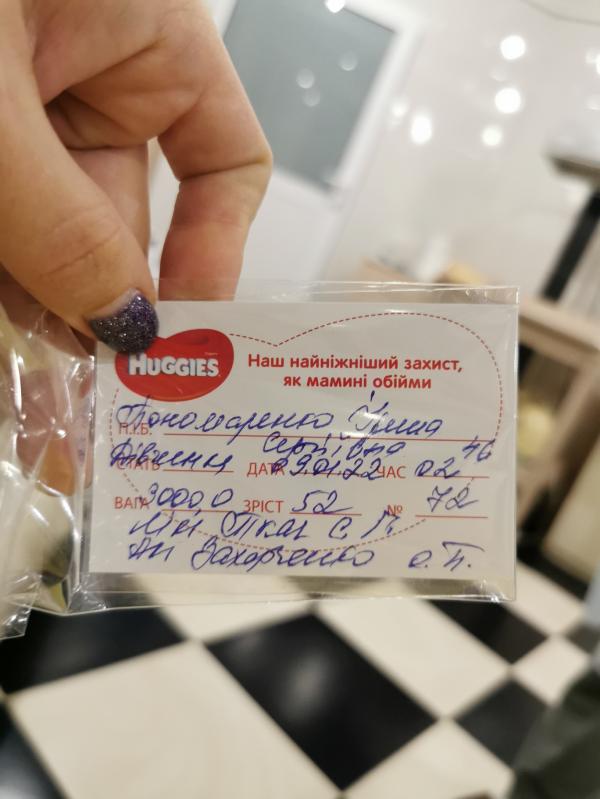 HUGGIES
Наш найніжніший захист,
як мамині обійми
П.І.Б. Пономаренко Ірина
Сергіївна
СТАТЬ дівчинка ДАТА 29.01.22 ЧАС 02 46
ВАГА 3000,0 ЗРІСТ 52 № 72
Ткач С.
Захарченко О. П.